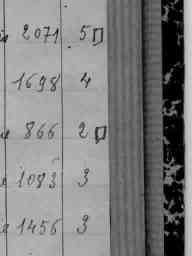 2071 5
1698 4
866 2
1083 3
1456 3